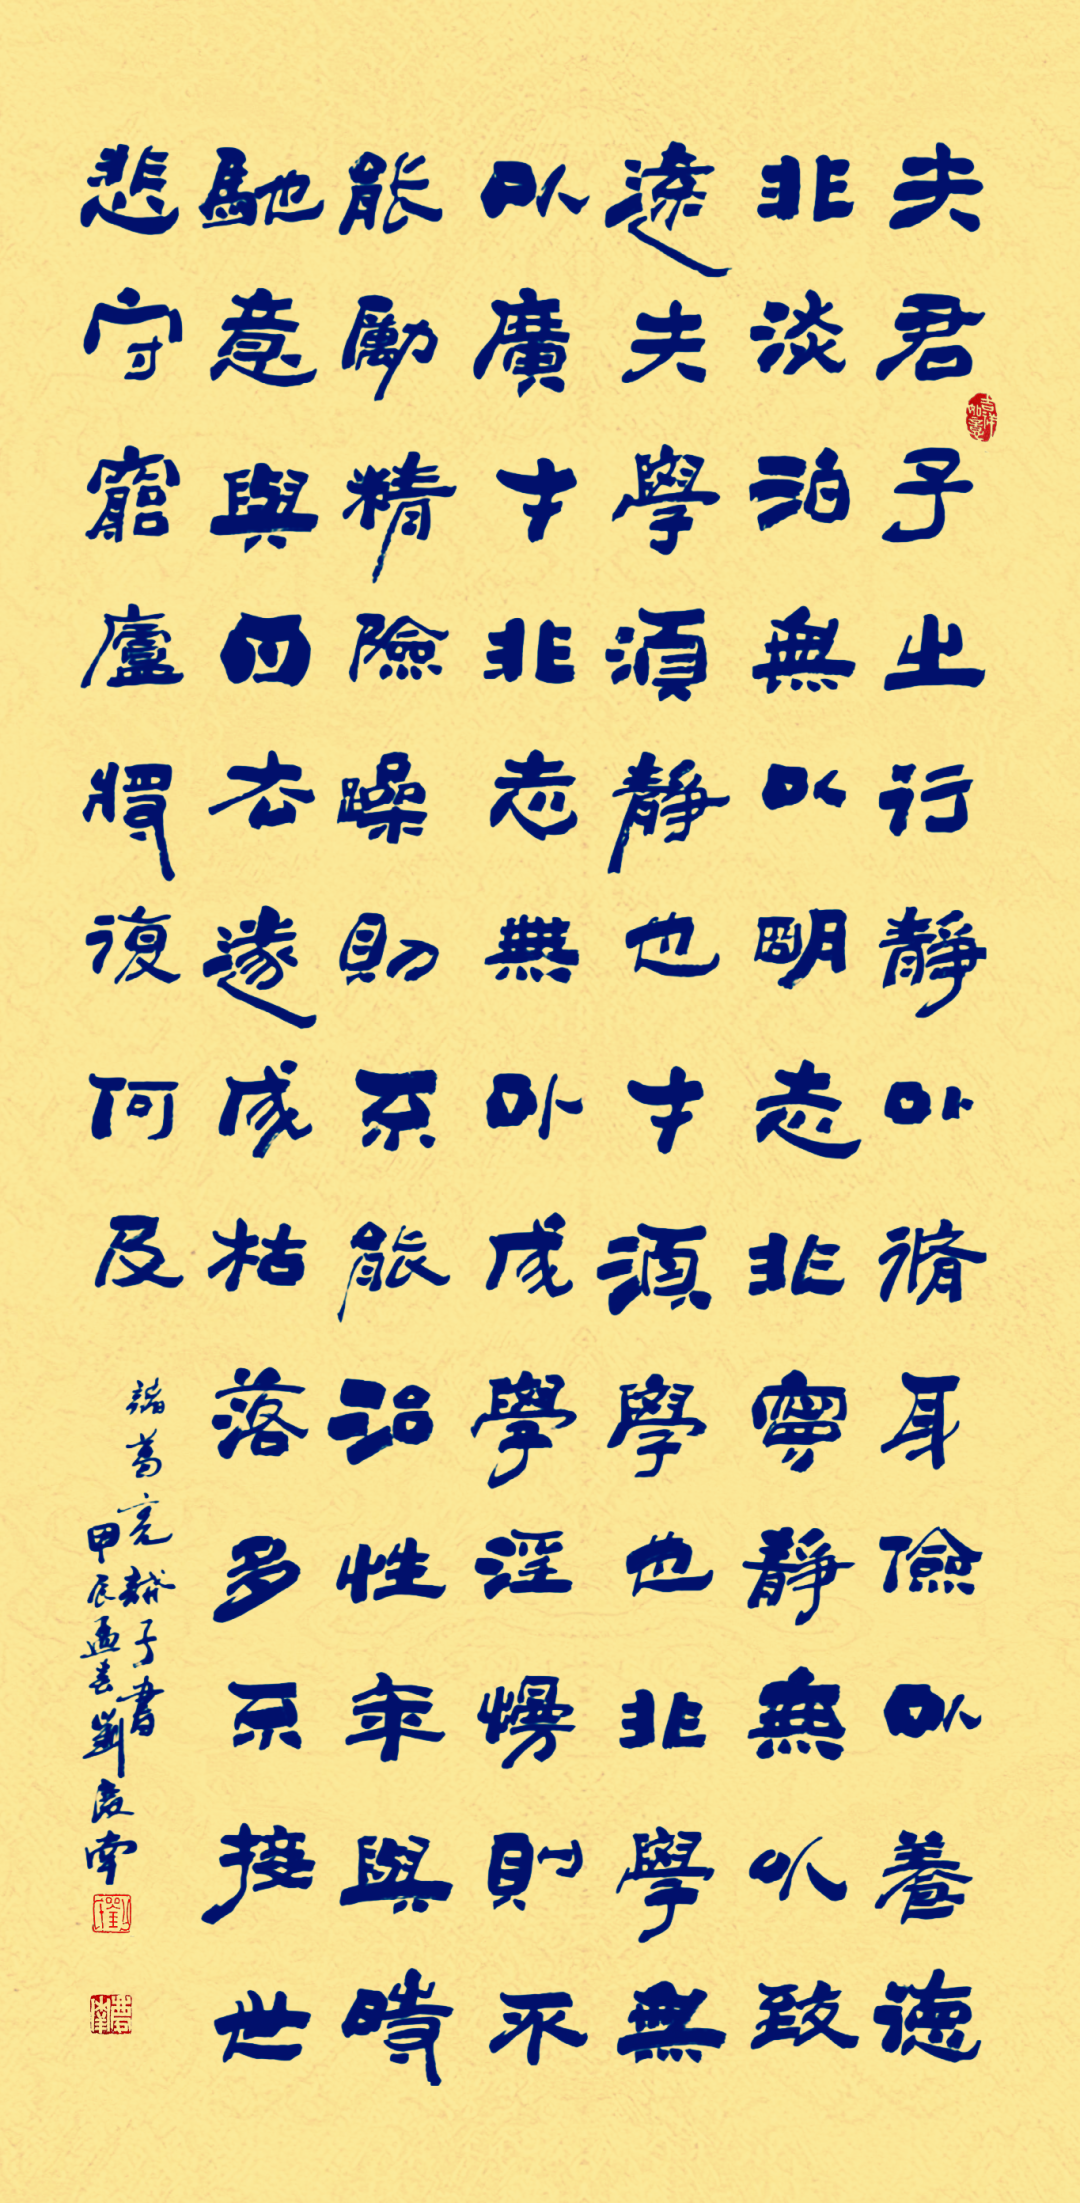 夫君子之行靜以脩身儉以養德
非淡泊無以明志非寧靜無以致
遠夫學須靜也才須學也非學無
以廣才非志無以成學淫慢則不
能勵精險躁則不能治性年與時
馳意與日去遂成枯落多不接世
悲守窮廬將復何及
諸葛亮誡子書
甲辰孟春劉南
吉祥如意